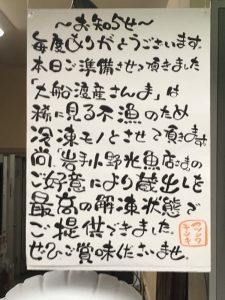 ～お知らせ～
毎度ありがとうございます。
本日ご準備させて頂きました
「大船渡産さんま」は
稀に見る不漁のため
冷凍モノとさせて頂きます
尚「岩手小野光魚店さま」の
ご好意により蔵出しを
最高の解凍状態で
ご提供できました。
ぜひご賞味くださいませ。